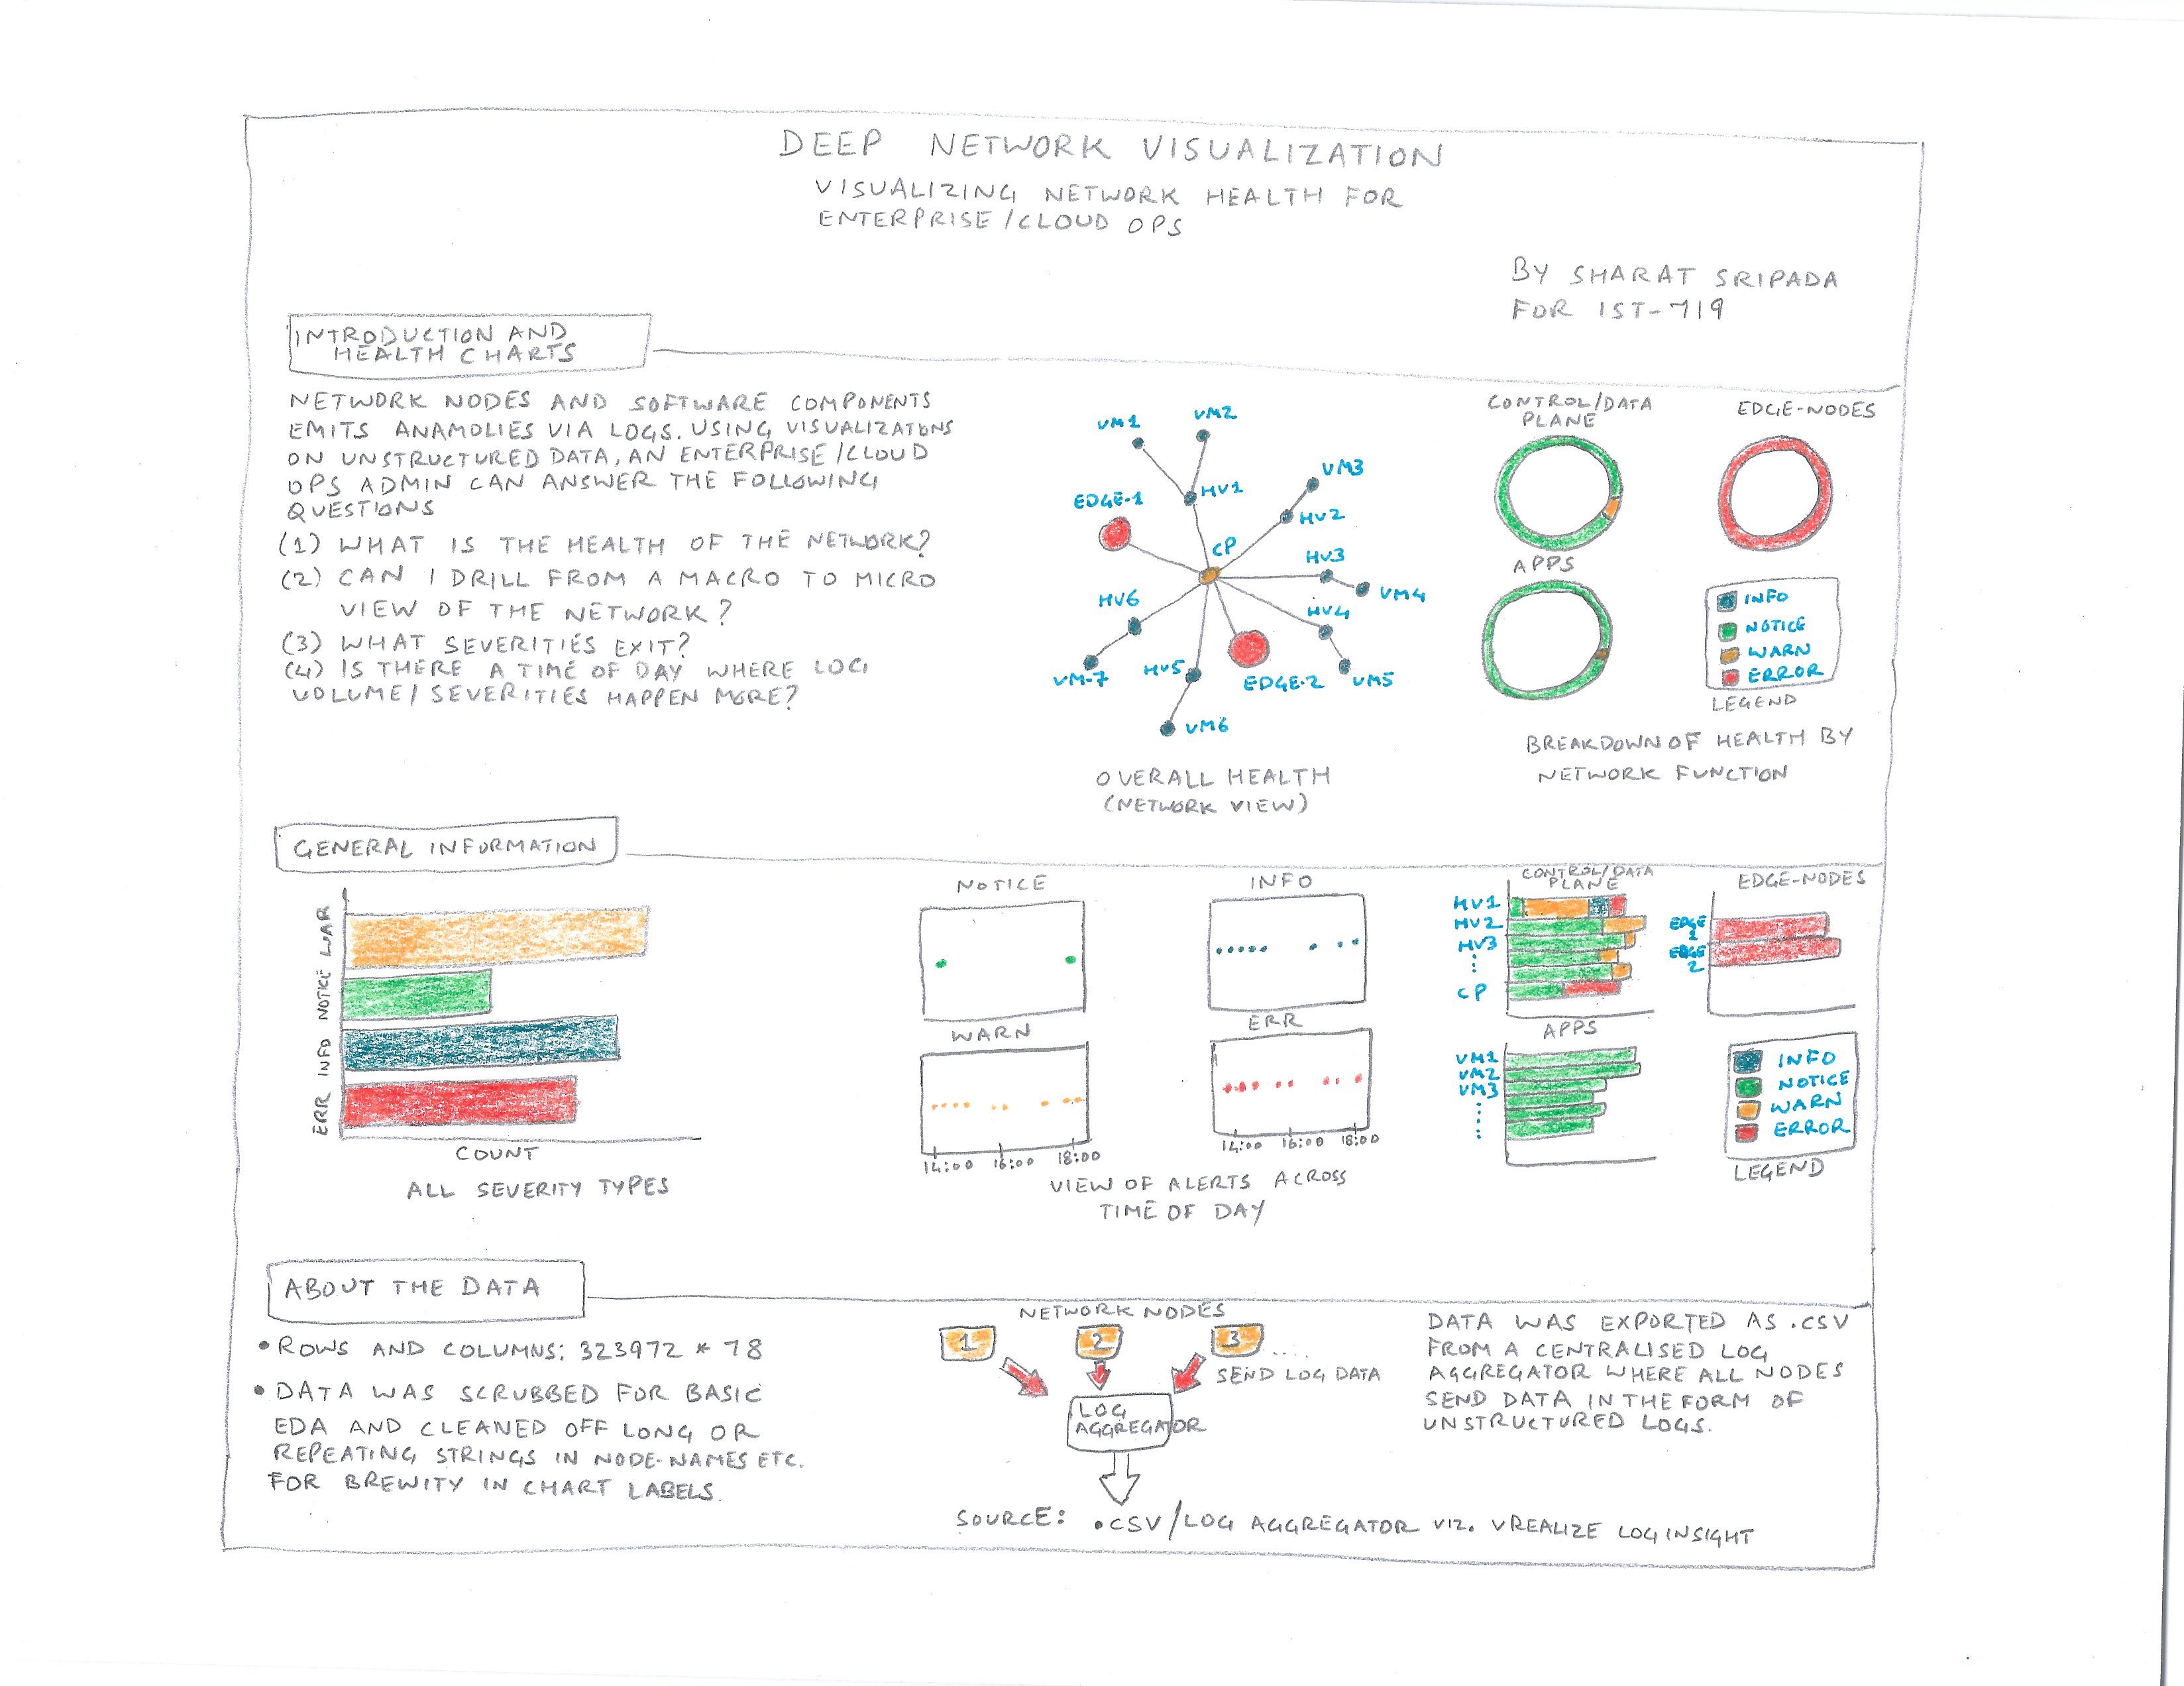 DEEP NETWORK VISUALIZATION
VISUALIZING NETWORK HEALTH FOR
ENTERPRISE/CLOUD OPS
BY SHARAT SRIPADA
FOR IST-719
INTRODUCTION AND
HEALTH CHARTS
NETWORK NODES AND SOFTWARE COMPONENTS
EMITS ANAMOLIES VIA LOGS. USING VISUALIZATONS
ON UNSTRUCTURED DATA, AN ENTERPRISE/CLOUD
OPS ADMIN CAN ANSWER THE FOLLOWING
QUESTIONS
(1) WHAT IS THE HEALTH OF THE NETWORK?
(2) CAN I DRILL FROM A MACRO TO MICRO
VIEW OF THE NETWORK?
(3) WHAT SEVERITIES EXIT?
(4) IS THERE A TIME OF DAY WHERE LOG
VOLUME/SEVERITIES HAPPEN MORE?
VM1
VM2
VM3
EDGE-1
HV1
HV2
CP
HV3
VM4
HV6
HV4
VM-7
HV5
EDGE-2
VM5
VM6
OVERALL HEALTH
(NETWORK VIEW)
CONTROL/DATA
PLANE
EDGE-NODES
APPS
INFO
NOTICE
WARN
ERROR
LEGEND
BREAKDOWN OF HEALTH BY
NETWORK FUNCTION
GENERAL INFORMATION
WAR
NOTICE
INFO
ERR
COUNT
ALL SEVERITY TYPES
NOTICE
INFO
WARN
ERR
14:00 16:00 18:00
14:00 16:00 18:00
VIEW OF ALERTS ACROSS
TIME OF DAY
CONTROL/DATA
PLANE
HV1
HV2
HV3
CP
EDGE-NODES
EDGE
1
EDGE
2
APPS
VM1
VM2
VM3
INFO
NOTICE
WARN
ERROR
LEGEND
ABOUT THE DATA
• ROWS AND COLUMNS: 323972 * 78
• DATA WAS SCRUBBED FOR BASIC
EDA AND CLEANED OFF LONG OR
REPEATING STRINGS IN NODE-NAMES ETC.
FOR BREWITY IN CHART LABELS.
NETWORK NODES
1 2 3 ....
SEND LOG DATA
LOG
AGGREGATOR
SOURCE: .CSV/LOG AGGREGATOR VIZ. VREALIZE LOG INSIGHT
DATA WAS EXPORTED AS .CSV
FROM A CENTRALISED LOG
AGGREGATOR WHERE ALL NODES
SEND DATA IN THE FORM OF
UNSTRUCTURED LOGS.